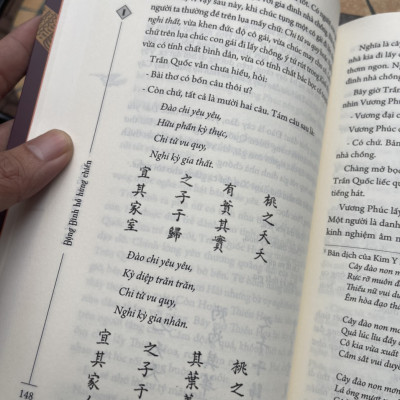 người ta thường để trên lụa mấy chữ: Chi tử
nghi thất, vừa khen đức độ cô gái, vừa chúc
chữ trên lụa con gái đi lấy chồng, ý tứ rút
vừa có tính chất bình dân, vừa có tính chất bác học
Trần Quốc vẫn chưa hiểu, hỏi:
- Bài thơ có bốn câu thôi ư?
- Còn chứ, tất cả là mười hai câu. Tám câu sau là
Đào chi yêu yêu,
Hữu phần kỳ thực,
Chi tử vu quy,
Nghi kỳ gia thất.
桃之夭夭
有蕡其實
之子于歸
宜其家室
Đào chi yêu yêu,
Kỳ diệp trăn trăn,
Chi tử vu quy,
Nghi kỳ gia nhân.
桃之
其葉
之子于
宜其家
Động Đình hồ hùng chiến
148
Nghĩa là
nhà kia đi lấy
thơm ngon. M
đình nhà chồng
Bấy giờ Trần
nhìn Vương Phúc
- Vương đại c
Vương Phúc
- Có chứ. Bản
nhà chồng.
Chàng mở bọ
Trần Quốc liếc
tiếng hát.
Vương Phúc lấy
Một người là danh
kinh nghiệm âm n
Bản dịch của Kim Y
Cây đào non mơ
Rực rỡ muôn đ
Thiếu nữ vui du
Êm hòa đạo thấ
Cây đào non mơ
Quả lúc lỉu đầy
Cô kia vừa xuất
Cầm sắt vui duy
Cây đào non mơ
Lá óng mượt